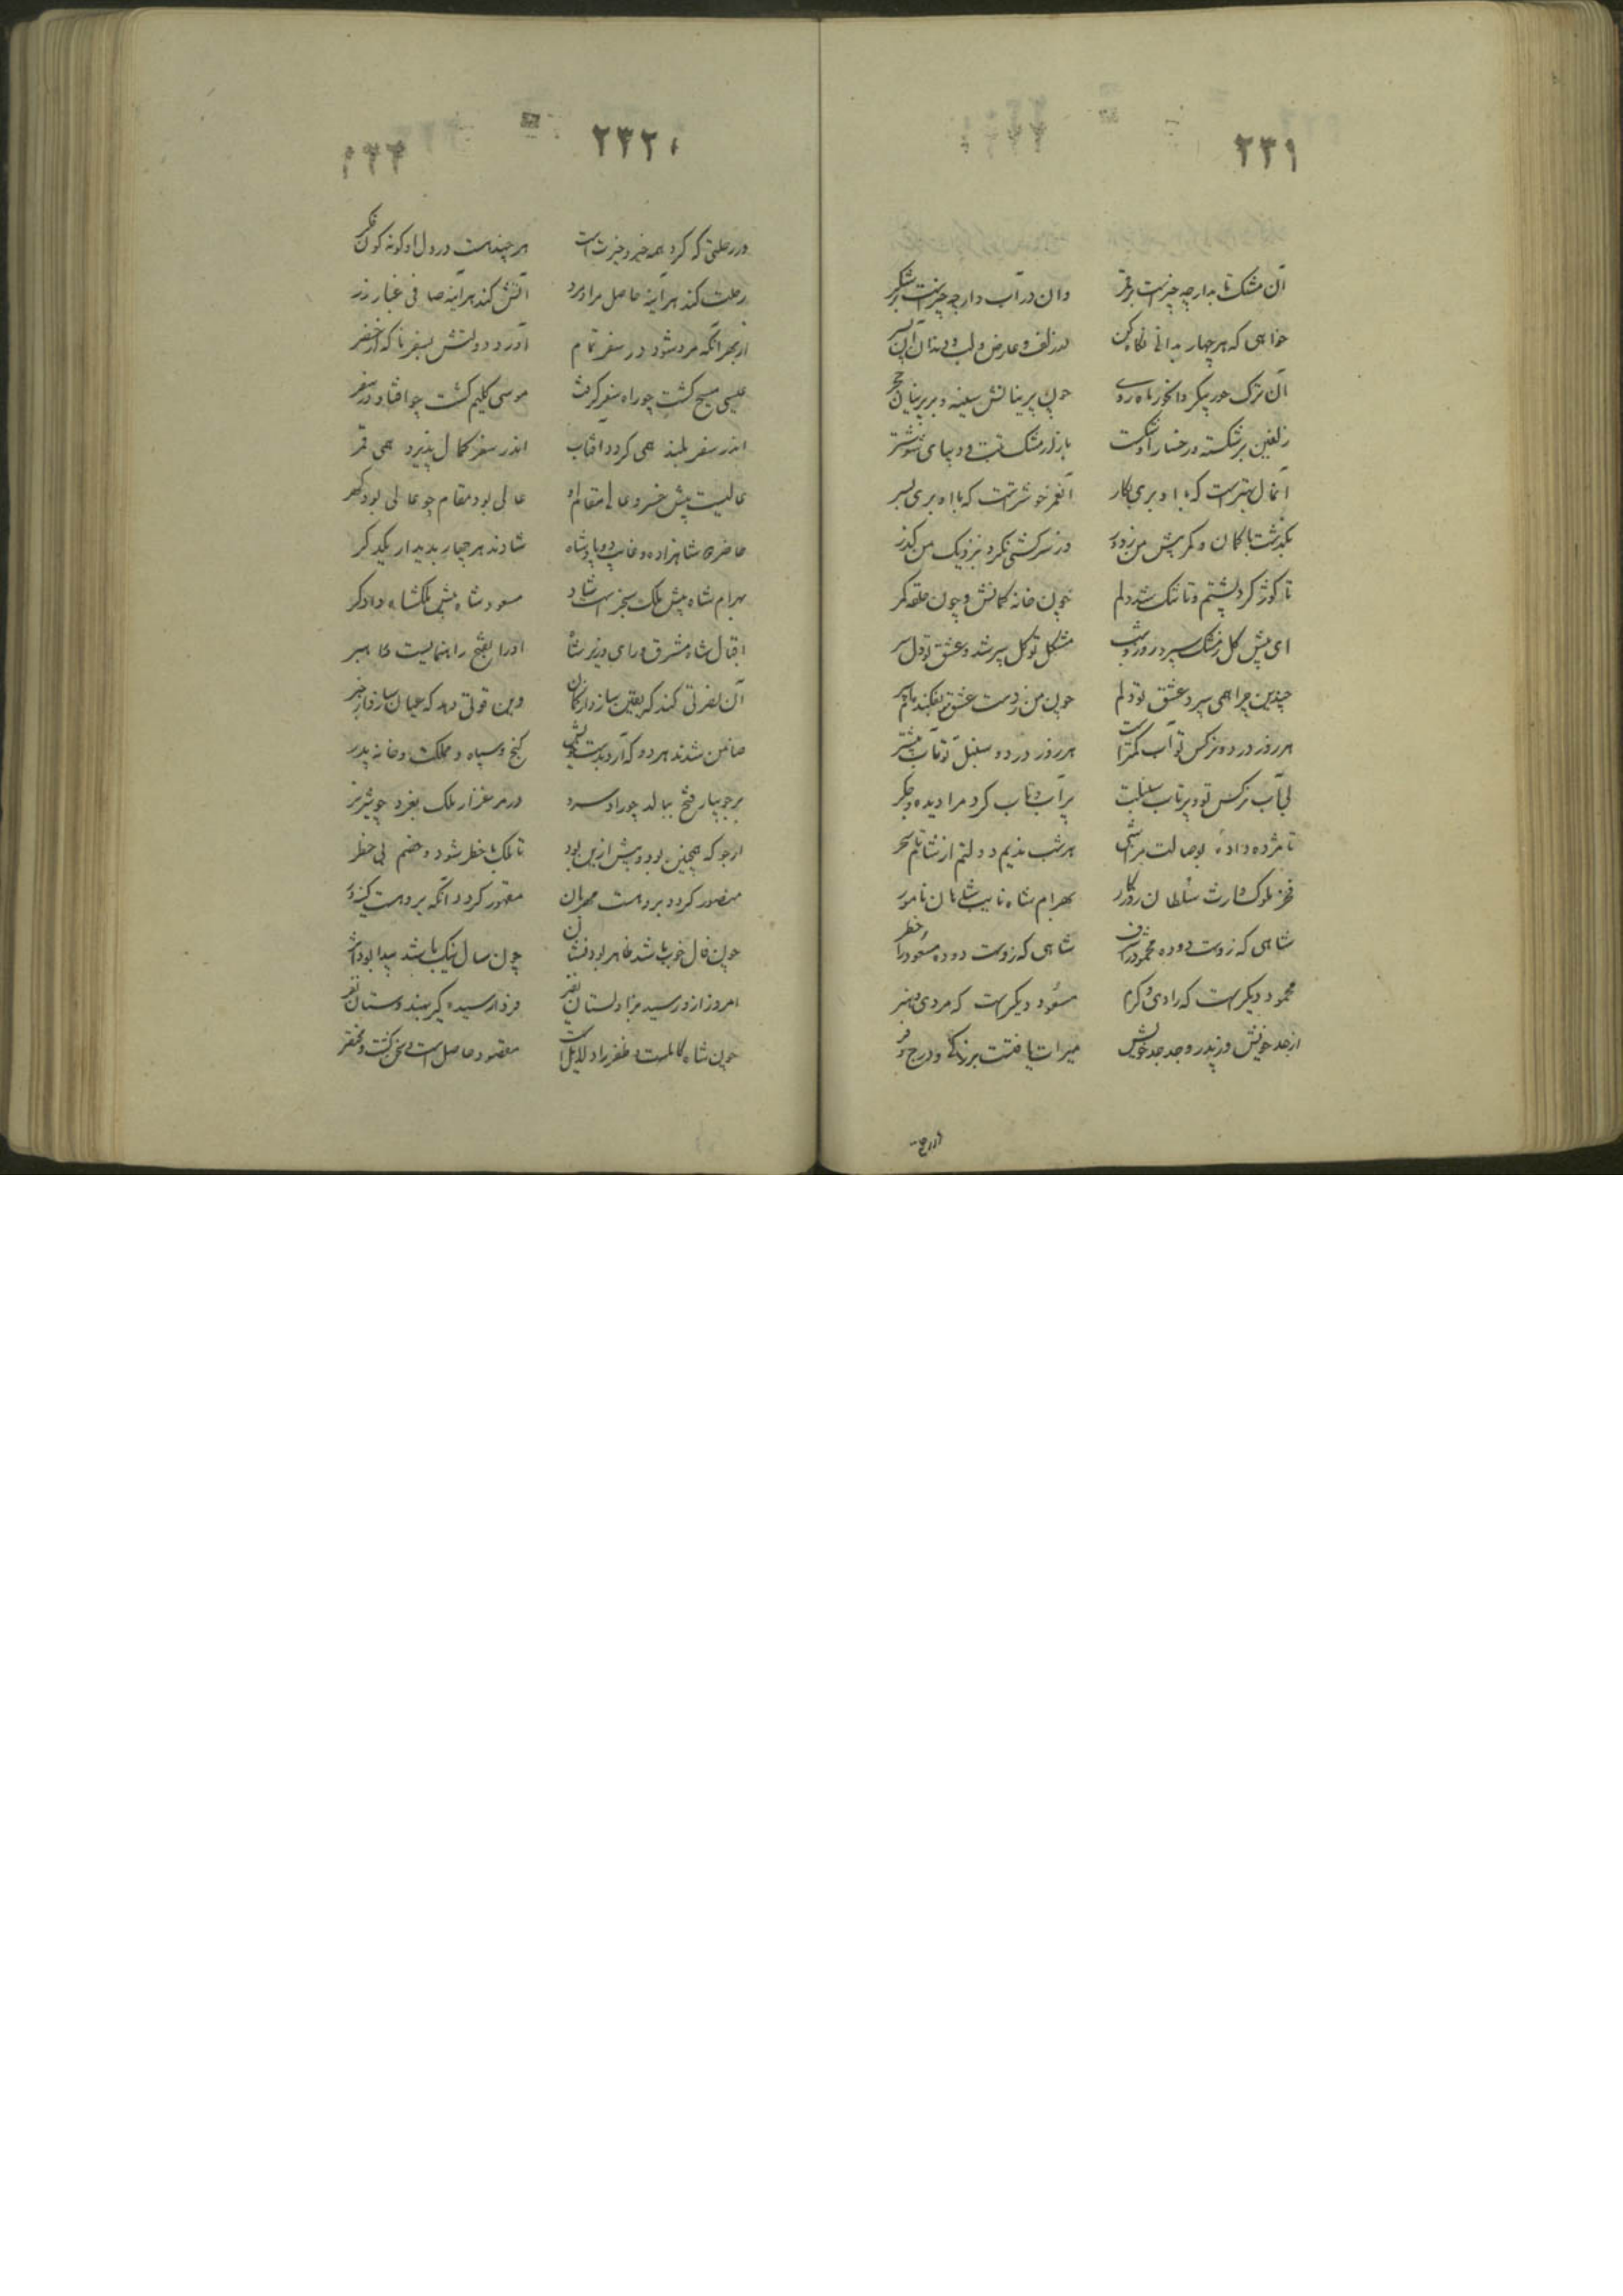 ۲۳۱
آن مشک تابدار چه چیزست بر قمر وان در آب دار چه چیزست بر شکر
خواهی که هر چهار بدانی نگاه کن در زلف و عارض و لب و دندان آن پسر
آن ترک حور پیکر ماه روی چون پرنیانش سینه و بر پرنیان حجر
زلفین بر شکسته و رخسار او شکست بازار مشک تبت و دیبای شوشتر
آنمال بهترست که با او بری بکار آنعمر خوشترست که با او بری بسر
بگذشت با کمان و کمر پیش من ز دور وز سرکشی نکرد بنزدیک من گذر
تا کوژ کرد پشتم و تا تنگ شد دلم چون خانه کمانش و چون حلقه کمر
ای پیش گل ز مشک سپر روز و شب مشکل تو گل سپر شد و عشق تو دل سپر
چندین چرا همی سپرد عشق تو دلم چون من ز دست عشق تو بفکنده‌ام سپر
هر روز در دو نرگس تو آب کمترست هر روز در دو سنبل تو تاب بیشتر
بی آب نرگس تو و پرتاب سنبلت پرآب و تاب کرد مرا دیده و جگر
تا مژده داده بوصالت مرا شبی هر شب ندیم دولتم از شام تا سحر
فخر ملوک وارث سلطان روزگار بهرام شاه نایب شاهان نامور
شاهی که زوست دوده محمود را شرف شاهی که زوست دوده مسعود را خطر
محمود دیگرست که رادی و کرم مسعود دیگرست که مردی و هنر
از جد خویش وز پدر و جد جد خویش میراث یافتست بزرگی و درج و فر
۲۳۲
در رحلتی که کرد همه خیر و خیرتست هر چند هست در دل او گونه گون فکر
رحلت کند هر آینه حاصل مراد مرد آتش کند هر آینه صافی عیار زر
از بهر آنکه مرد شود در سفر تمام آورد دولتش بسفر ناگه از حضر
عیسی مسیح گشت چو راه سفر گرفت موسی کلیم گشت چو افتاد در سفر
اندر سفر بلند همی گردد افتاب اندر سفر کمال پذیرد همی قمر
عالیست پیش خسرو عالی مقام او عالی بود مقام چو عالی بود گهر
حاضر دو شاهزاده و غایب دو پادشاه شادند هر چهار بدیدار یکدگر
بهرام شاه پیش ملک سنجرست شاد مسعود شاه پیش ملکشاه دادگر
اقبال شاه مشرق و رای وزیر شاه او را بفتح راهنمایست و راهبر
آن نصرتی کند که یقین سازد از گمان وین قوتی دهد که عیان سازد از خبر
ضامن شدند هر دو که آرد بدست گنج و سپاه و مملکت و خانه پدر
بر جویبار فتح ببالد چو راد سرو در مرغزار ملک بغرد چو شیر نر
ارجو که همچنین بود و پیش ازین بود تا ملک با خطر شود و خصم بی خطر
منصور گردد بر دوست مهربان مقهور گردد آنکه بر دوست
چون فال خوب باشد ظاهر بود نشان چون سال نیک باشد پیدا بود اثر
امروز از او رسید بزاولستان نفیر فردا رسیده گیر بهندوستان نفر
چون شاه کاملست و ظفر را دلایل است مقصود حاصل است و سخن گشت مختصر